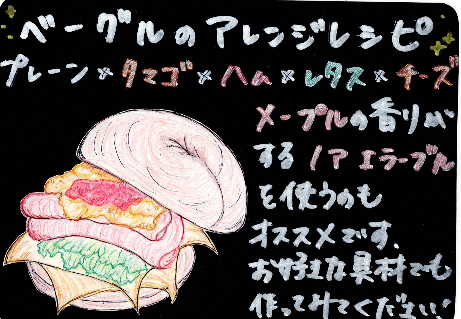 ベーグルのアレンジレシピ
プレーン×タマゴ×ハム×レタス×チーズ
メープルの香りが
する ノア エラーブル
を使うのも
オススメです。
お好きな具材でも
作ってみてください!